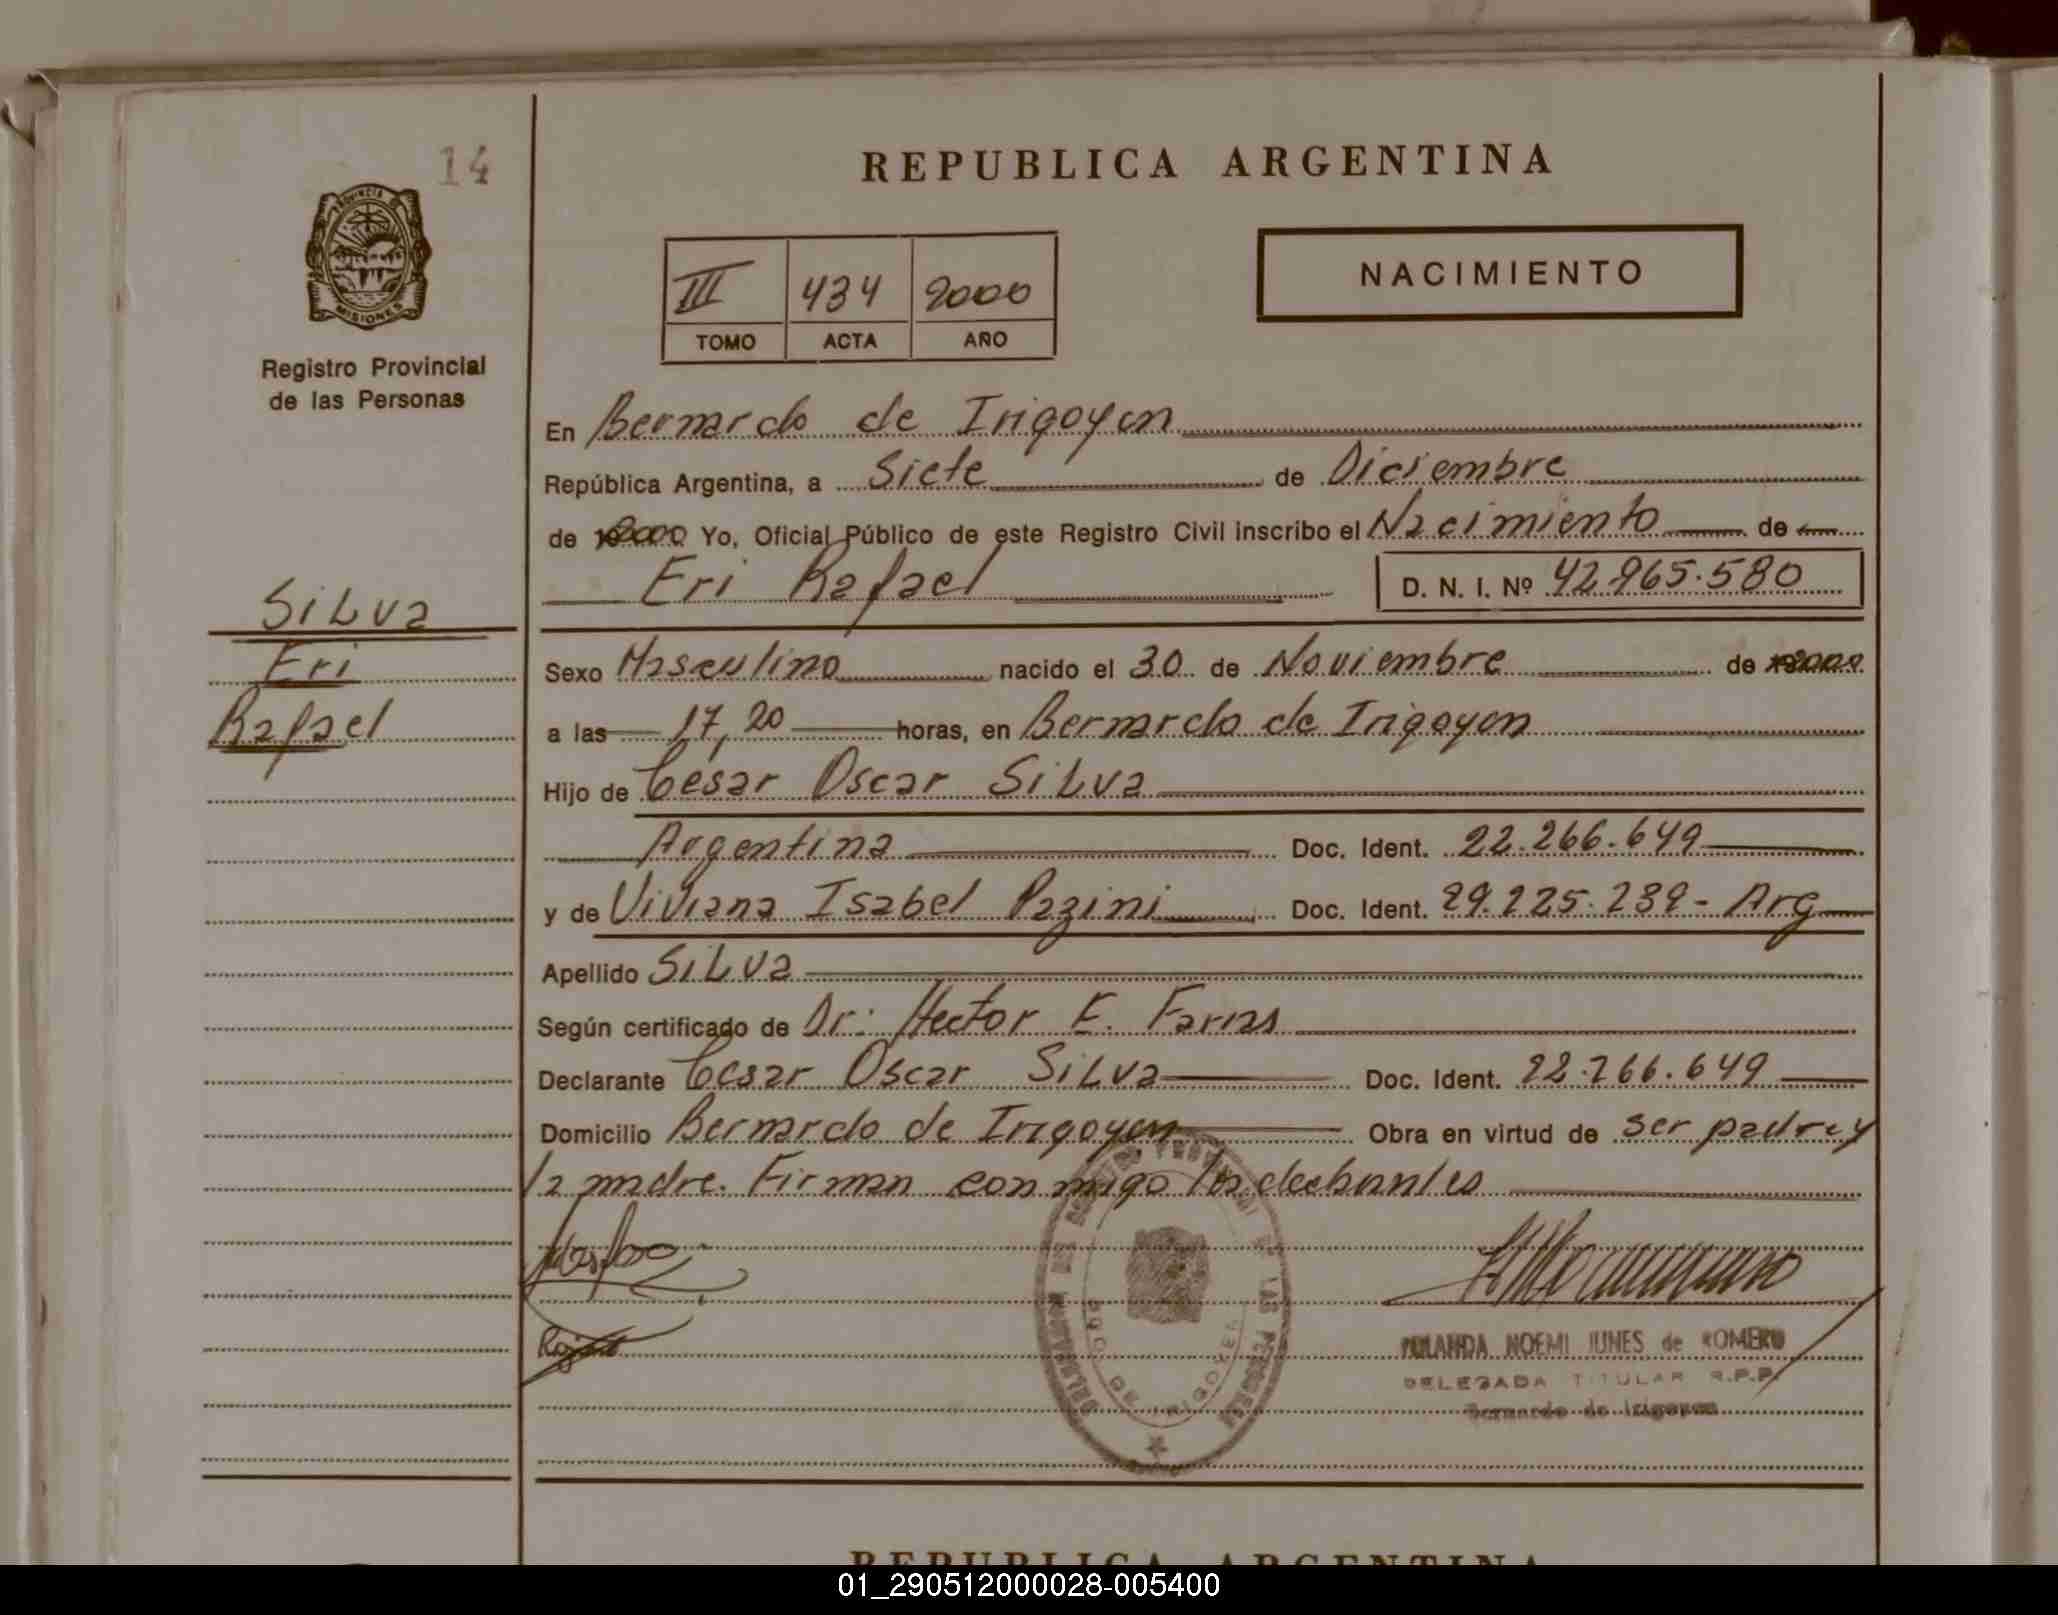 14
REPUBLICA ARGENTINA
PROVINCIA DE
MISIONES
Registro Provincial
de las Personas
III 434 2000
TOMO ACTA AÑO
NACIMIENTO
En Bernardo de Irigoyen
República Argentina, a Siete de Diciembre
de 2000 Yo, Oficial Público de este Registro Civil inscribo el Nacimiento de
Eri Rafael D. N. I. Nº 42.965.580
Silva
Eri
Rafael
Sexo Masculino nacido el 30 de Noviembre de 2000
a las 17,20 horas, en Bernardo de Irigoyen
Hijo de Cesar Oscar Silva
Argentina Doc. Ident. 22.266.649
y de Viviana Isabel Pazini Doc. Ident. 29.225.239 - Arg
Apellido Silva
Según certificado de Dr: Hector E. Farias
Declarante Cesar Oscar Silva Doc. Ident. 22.266.649
Domicilio Bernardo de Irigoyen Obra en virtud de ser padre y
la madre. Firman conmigo los declarantes
YOLANDA NOEMI JUNES de ROMERO
DELEGADA TITULAR R.P.P.
Bernardo de Irigoyen
REPUBLICA ARGENTINA
01_290512000028-005400